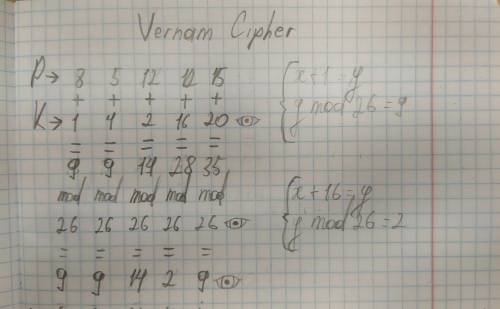 Vernam Cipher
P→ 8 5 12 12 15
+ + + + +
K→ 1 4 2 16 20
= = = = =
9 9 14 28 35
mod mod mod mod mod
26 26 26 26 26
= = = = =
9 9 14 2 9
x+1=y
y mod 26=9
x+16=y
y mod 26=2